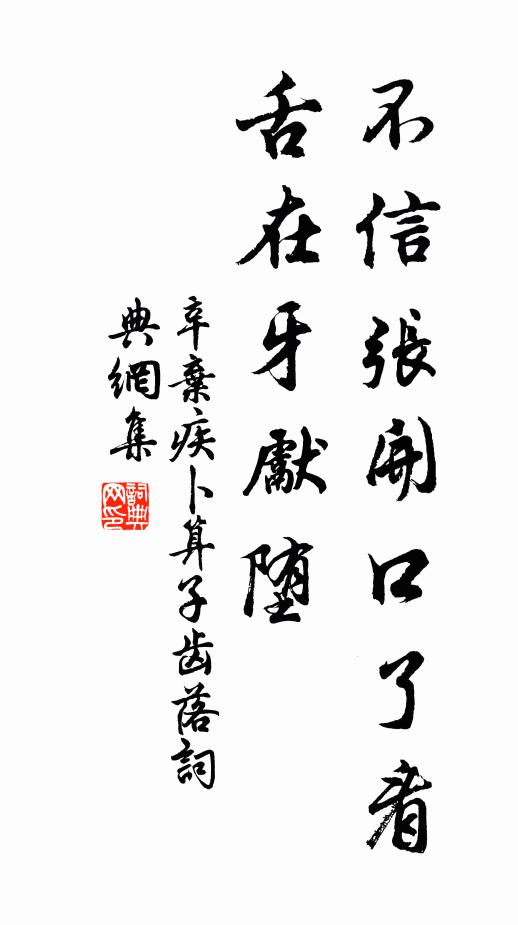 不信張開口了看
舌在牙獻堕
辛棄疾卜算子齿落詞
典網集
詞典网印